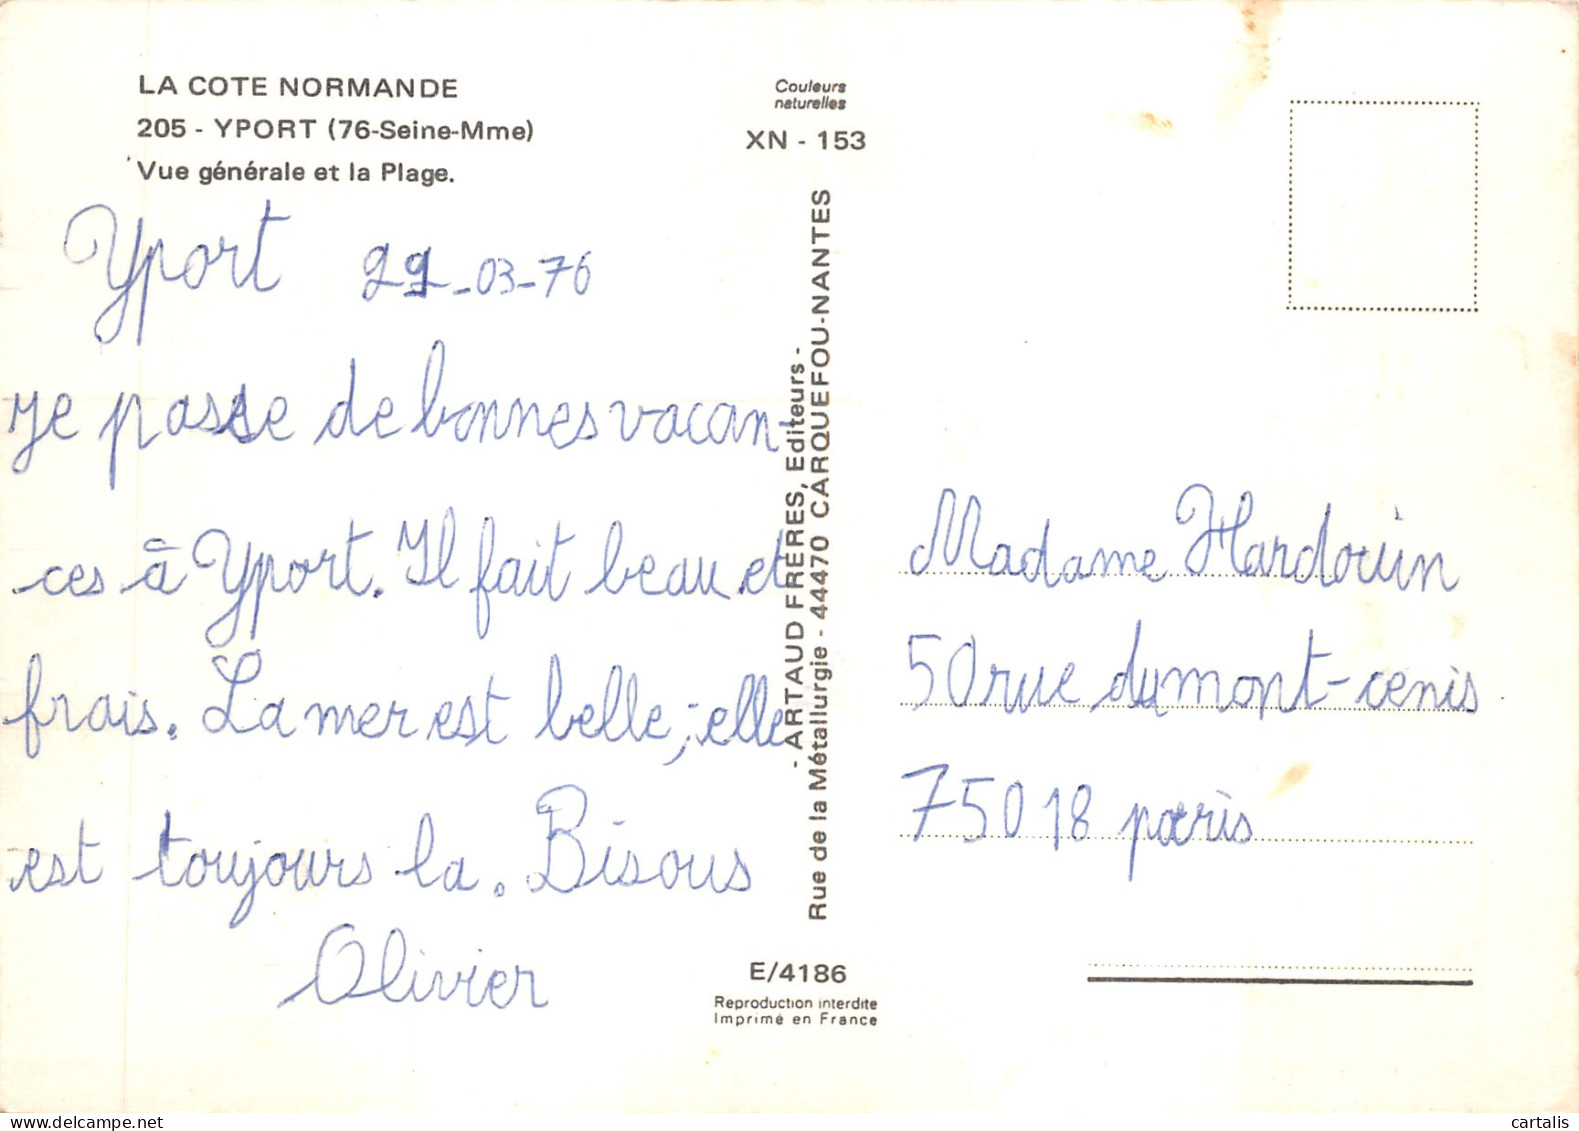 LA COTE NORMANDE
205 - YPORT (76-Seine-Mme)
Vue générale et la Plage.
Yport 29-03-76
Je passe de bonnes vacan-
ces à Yport. Il fait beau et
frais. La mer est belle, elle
est toujours la. Bisous
Olivier
Couleurs
naturelles
XN - 153
- ARTAUD FRÈRES, Editeurs -
Rue de la Métallurgie - 44470 CARQUEFOU-NANTES
E/4186
Reproduction interdite
Imprimé en France
Madame Hardouin
50 rue du mont-cenis
75018 paris
www.delcampe.net
cartalis